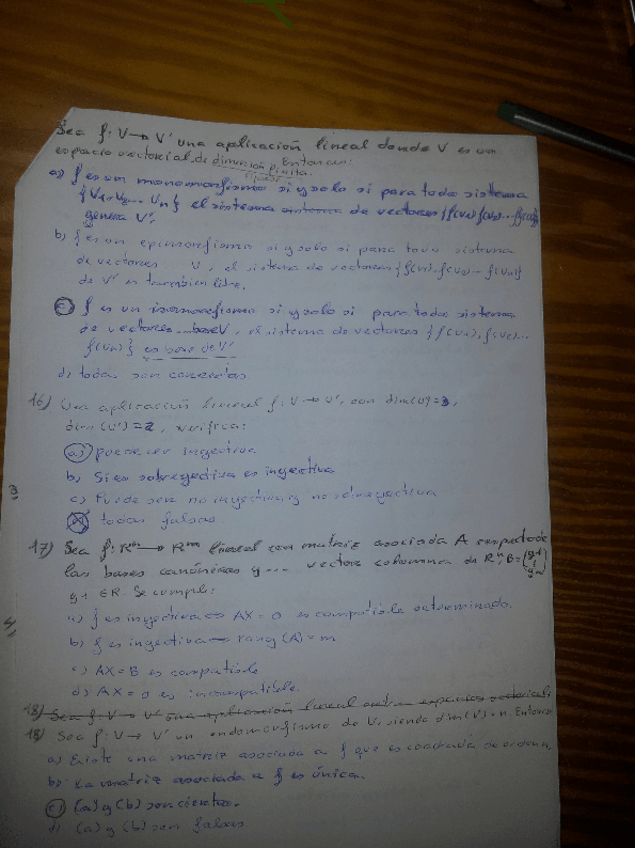 Sea f: V → V' una aplicación lineal donde V es un
espacio vectorial de dimensión finita. Entonces:
a) f es un monomorfismo si y solo si para todo sistema
{V1, V2... Vn} el sistema de vectores {f(v1) f(v2)... f(vn)}
genera V'.
b) f es un epimorfismo si y solo si para todo sistema
de vectores V, el sistema de vectores {f(v1), f(v2) - f(vn)}
de V' es también libre.
c) f es un isomorfismo si y solo si para todo sistema
de vectores base V, el sistema de vectores {f(v1), f(v2)...
f(vn)} es base de V'
d) todas son correctas.
16) Una aplicación lineal f: V → V', con dim(V)=3,
dim(V')=2, verifica:
a) puede ser inyectiva
b) Si es sobreyectiva es inyectiva
c) Puede ser no inyectiva y no sobreyectiva
d) todas falsas
3
17) Sea f: Rn → Rm lineal con matriz asociada A respecto de
las bases canónicas y ... vector columna de R, B=
y1 ∈ R. Se cumple:
a) f es inyectiva ⇔ AX = 0 es compatible determinado.
b) f es inyectiva ⇔ rang (A) = m
4
c) AX = B es compatible
d) AX = 0 es incompatible.
18) Sea f: V → V' una aplicación lineal entre espacios vectoriales
18) Sea f: V → V' un endomorfismo de V, siendo dim(V)=n. Entonces
a) Existe una matriz asociada a f que es cuadrada de orden n
b) La matriz asociada a f es única.
c) (a) y (b) son ciertas.
d) (a) y (b) son falsas